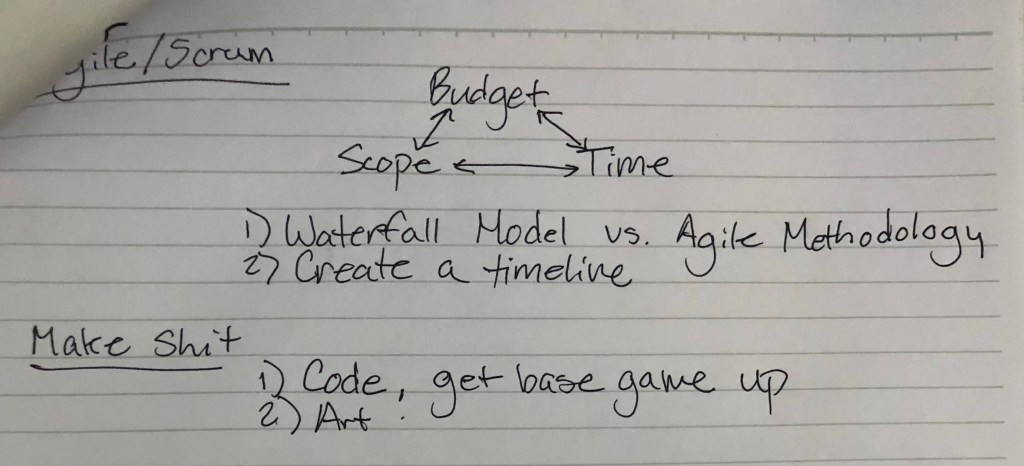 gile/Scrum
Budget
Scope Time
1) Waterfall Model vs. Agile Methodology
2) Create a timeline
Make Shit
1) Code, get base game up
2) Art